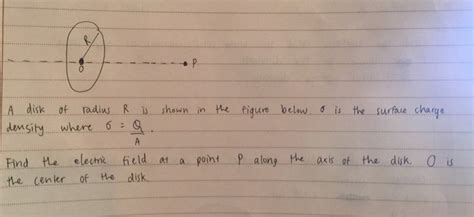 R
O
P
A disk of radius R is shown in the figure below. σ is the surface charge
density where σ = Q/A.
Find the electric field at a point P along the axis of the disk. O is
the center of the disk